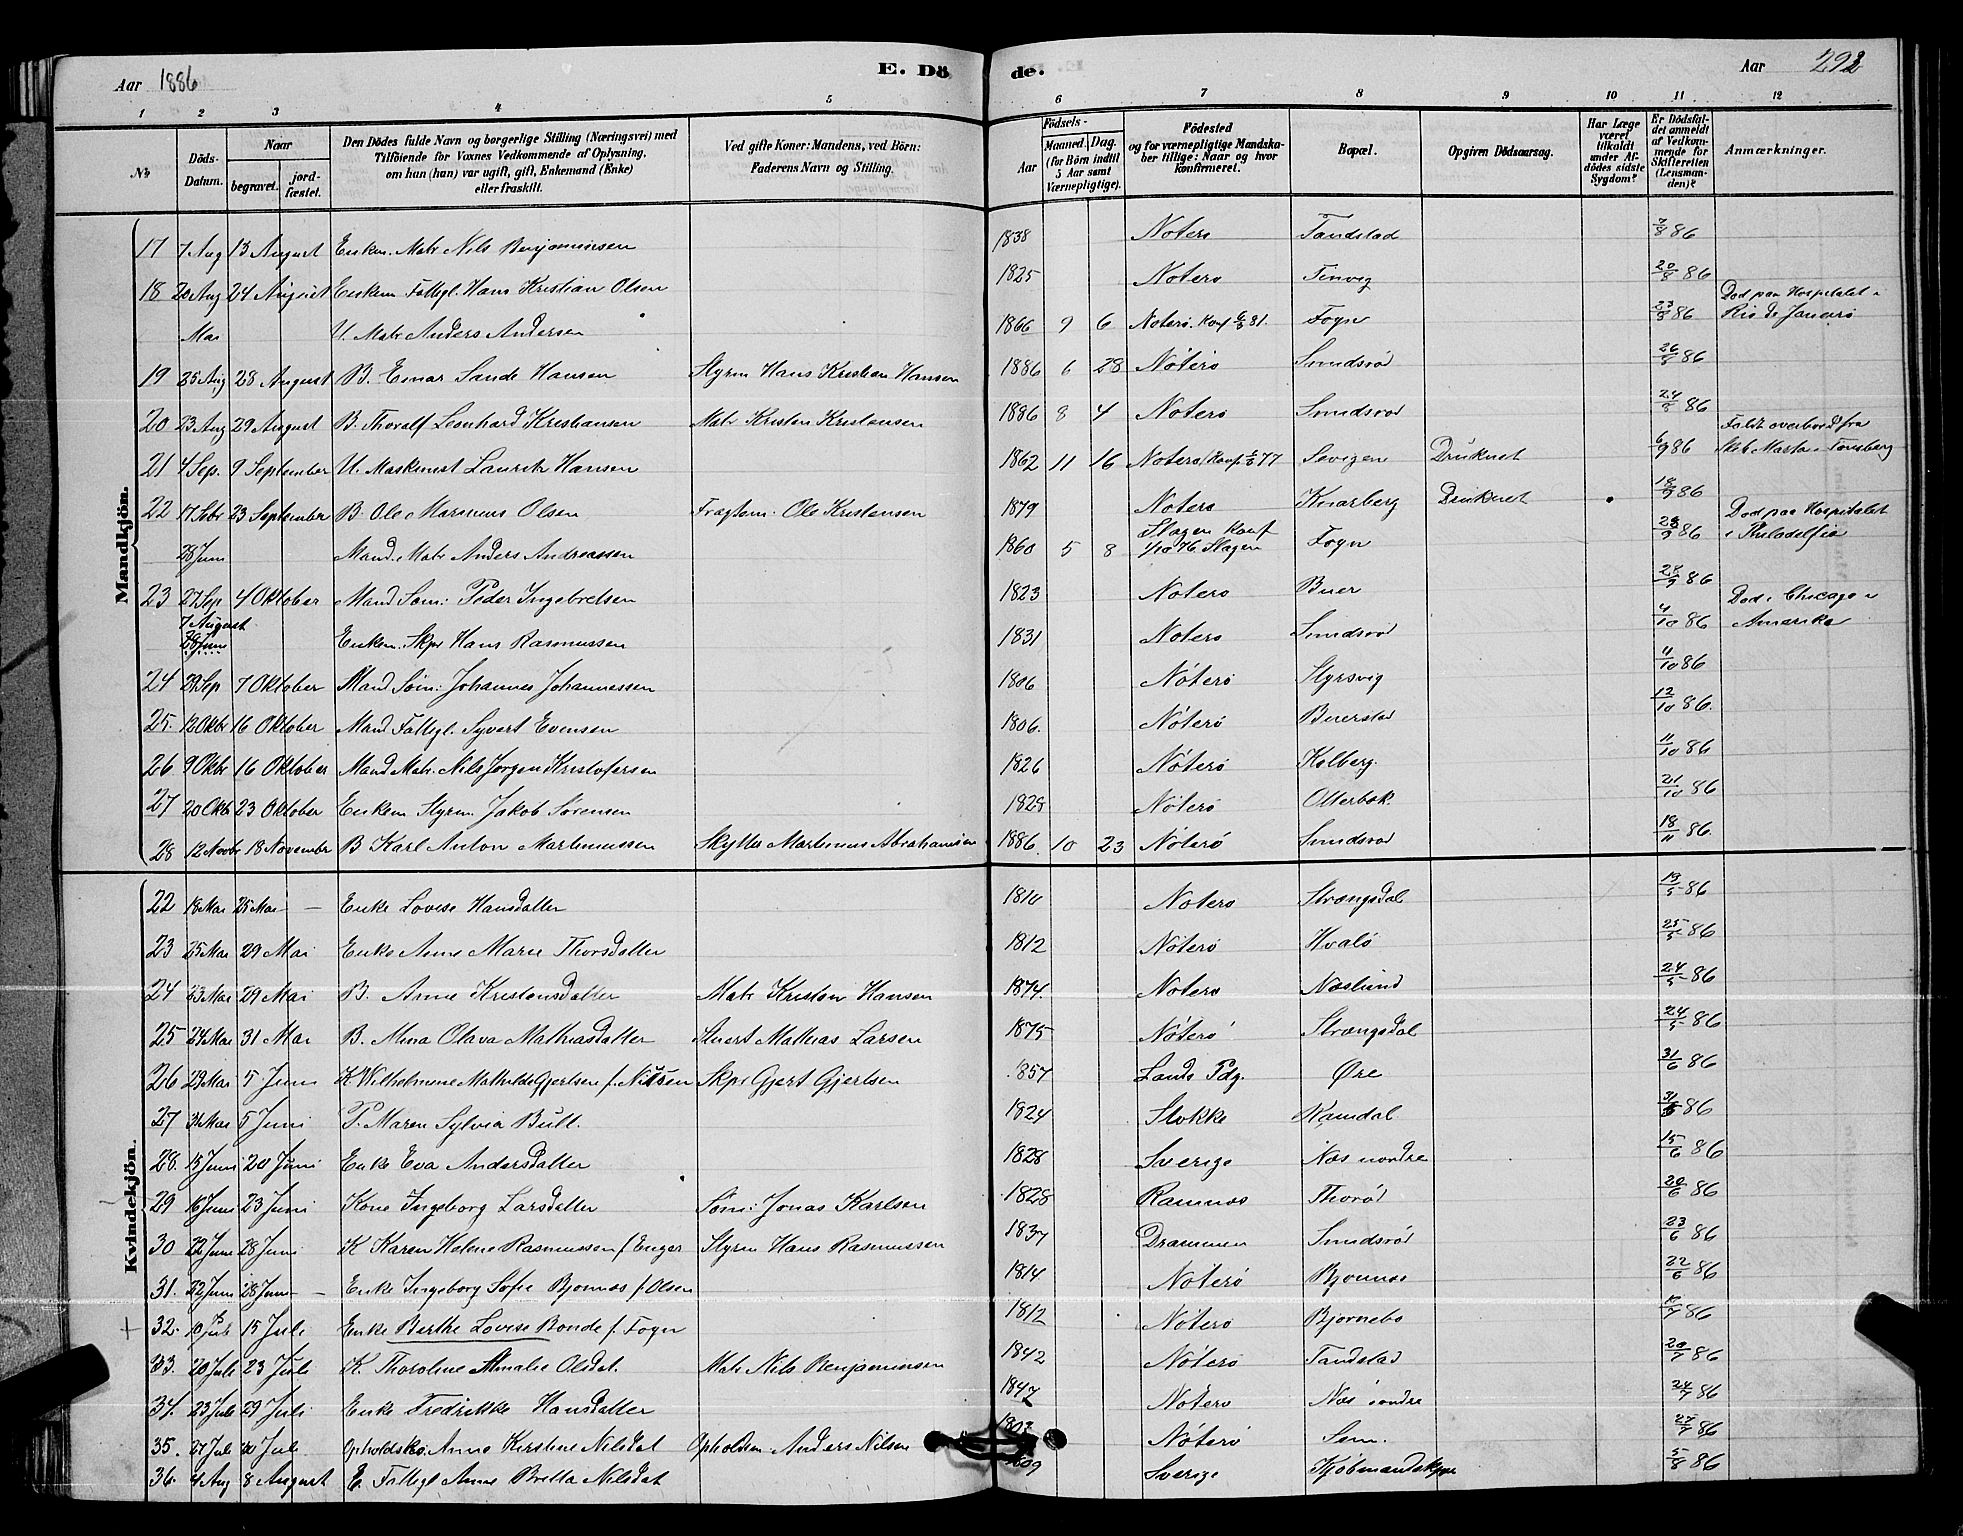 Aar 1886
E. Dö de.
Aar 292
1 2 3 4 5 6 7 8 9 10 11 12
No
Döds-Datum.
Naar
begravet.
jord-fæstet.
Den Dödes fulde Navn og borgerlige Stilling (Næringsvei) med
Tilföiende for Voxnes Vedkommende af Oplysning,
om hun (han) var ugift, gift, Enkemand (Enke)
eller fraskilt.
Ved gifte Koner: Mandens, ved Börn:
Faderens Navn og Stilling.
Födsels-
Aar
Maaned. Dag.
(for Börn indtil
5 Aar samt
Værnepligtige).
Födested
og for værnepligtige Mandska-
ber tillige: Naar og hvor
konfirmeret.
Bopæl.
Opgiven Dödsaarsag.
Har Læge
været
tilkaldt
under Af-
dödes sidste
Sygdom?
Er Dödsfal-
det anmeldt
af Vedkom-
mende for
Skifteretten
(Lensman-
den)?
Anmærkninger.
Mandkjön.
17 7 Aug 13 August Enkem. Matr Nils Benjaminsen 1838 Nøterø Tandstad 7/8 86
18 20 Aug 24 August Enkem Fattigl. Hans Kristian Olsen 1825 Nøterø Tinvig 20/8 86
Død paa Hospitalet i
Mai U. Matr Anders Andersen 1866 9 6 Nøterø. Konf 81. Fogn 23/8 86 Rio de Janeiro
19 25 Aug 28 August B. Einar Sande Hansen Styrm Hans Kristian Hansen 1886 6 28 Nøterø Smidsrød 26/8 86
20 23 Aug 29 August B. Thoralf Leonhard Kristiansen Matr Kristen Kristensen 1886 8 4 Nøterø Smidsrød 24/8 86
Faldt overbord fra
21 4 Sep. 9 September U. Maskinist Lauritz Hansen 1862 11 16 Nøterø Konf. 77 Druknet 6/9 86 Skib Marta i Tønsberg
22 17 Sebr 23 September B. Ole Marinius Olsen Fragtem: Ole Kristensen 1879 Nøterø Knarberg Druknet 18/9 86
Død paa Hospitalet
28 Juni Mand. Matr Anders Andreassen 1860 5 8 Slagen Konf 1/10 76 Slagen Fogn 28/9 86 i Philadelfia
23 27 Sep 4 Oktober Mand Søm: Peder Ingebretsen 1823 Nøterø Buer 28/9 86
Død i Chicago i
7 August
28 Juni Enkem. Skpr Hans Rasmussen 1831 Nøterø Smidsrød 4/10 86 Amerika
24 29 Sep 7 Oktober Mand Søm: Johannes Johannessen 1806 Nøterø Styrsvig 11/10 86
25. 12 Oktbr 16 Oktober Mand Fattigl. Syvert Evensen 1806. Nøterø Buerstad 12/10 86.
26 9 Oktbr 16 Oktober Mand Matr. Nils Jørgen Kristofersen 1826 Nøterø Kolberg. 11/10 86
27 20 Oktb 23 Oktober Enkem Styrm Jakob Sørensen 1828 Nøterø Otterbæk. 21/10 86
28 12 Novbr 18 November B Karl Anton Martinussen Skytter Martinus Abrahamsen 1886. 10 23 Nøterø Smidsrød 18/11 86.
Kvindekjön.
22 18 Mai 25 Mai – Enke Lovise Hansdatter 1810 Nøterø Strængsdal 19/5 86
23 25 Mai 29 Mai Enke Anne Marie Thorsdatter 1812 Nøterø Hvalø 25/5 86
24 23 Mai 29 Mai B. Anne Kristensdatter Matr Kristen Hansen 1874. Nøterø Næslund 24/5 86
25 24 Mai 31 Mai B. Mina Olava Mathiasdatter Stuert Mathias Larsen 1875 Nøterø Strængsdal 24/5 86
26 29 Mai 5 Juni K Wilhelmine Mathilde Gjertsen f. Nilsen Skpr Gjert Gjertsen 1857 Lands Pdg. Øre 31/6 86
27 31 Mai 5 Juni P. Maren Sylvia Bull. 1824 Stokke Ramdal 31/5 86
28. 15 Juni 20 Juni Enke Eva Andersdatter 1828 Sverige Næs nordre 15/6 86
29 16 Juni 23 Juni Kone Ingeborg Larsdatter Søm: Jonas Karlsen 1828 Ramnæs Thorød 20/6 86
30 22 Juni 28 Juni K Karen Helene Rasmussen f Enger Styrm Hans Rasmussen 1837 Drammen Smidsrød 23/6 86
31. 22 Juni 28 Juni – Enke Ingeborg Sofie Bjønnæs f. Olsen 1814 Nøterø Bjønnæs 22/6 86
32. 10 Juli 15 Juli Enke Berthe Lovise Bonde f. Fogn 1812 Nøterø Bjørnebo 86
33. 20 Juli 23 Juli K. Thoroline Amalie Olsdat. Matr Nils Benjaminsen 1842 Nøterø Tandstad 20/7 86
34. 23 Juli 29 Juli Enke Fredrikke Hansdatter 1847 Nøterø Næs søndre 24/7 86
35. 27 Juli 30 Juli Opholdsko. Anne Kirstine Nilsdat Opholdsm. Anders Nilsen Nøterø Sem. 27/7 86
36. 4 Aug 8 August E. Fattigl Anne Britta Nilsdat Sverige Kjøbmandskjær 5/8 86